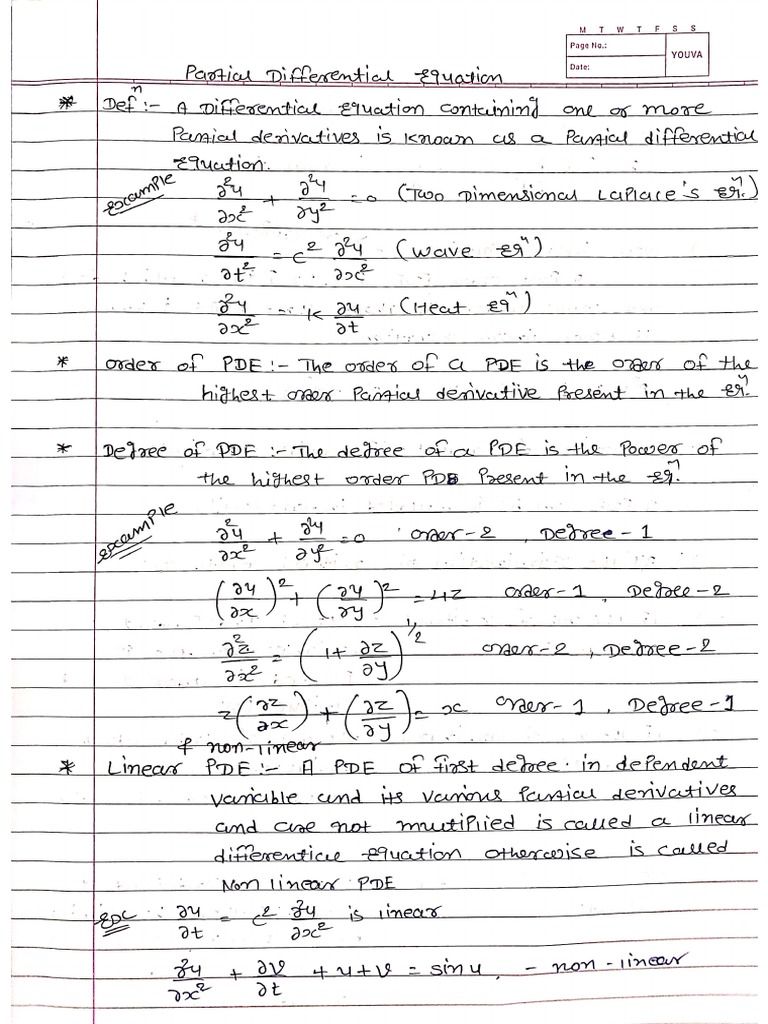 M T W T F S S
Page No.:
YOUVA
Date:
Partial Differential Equation
* Defⁿ :- A Differential Equation containing one or more
Partial derivatives is known as a Partial differential
Equation.
Example ∂²u/∂x² + ∂²u/∂y² = 0 (Two Dimensional Laplace's Eqⁿ.)
∂²u/∂t² = c² ∂²u/∂x² (Wave Eqⁿ)
∂²u/∂x² = K ∂u/∂t (Heat Eqⁿ)
* Order of PDE :- The order of a PDE is the order of the
highest order Partial derivative Present in the Eqⁿ.
* Degree of PDE :- The degree of a PDE is the Power of
the highest order PDE Present in the Eqⁿ.
Example ∂²u/∂x² + ∂²u/∂y² = 0 Order-2, Degree-1
(∂u/∂x)² + (∂u/∂y)² = 4z Order-1, Degree-2
∂²z/∂x² = (1 + ∂z/∂y)^1/2 Order-2, Degree-2
z(∂z/∂x) + (∂z/∂y) = x Order-1, Degree-1
& non-linear
* Linear PDE :- A PDE of first degree in dependent
variable and its various Partial derivatives
and are not multiplied is called a linear
differential equation otherwise is called
Non linear PDE
Ex ∂u/∂t = c² ∂²u/∂x² is linear
∂²u/∂x² + ∂v/∂t + u + v = sin u, - non-linear